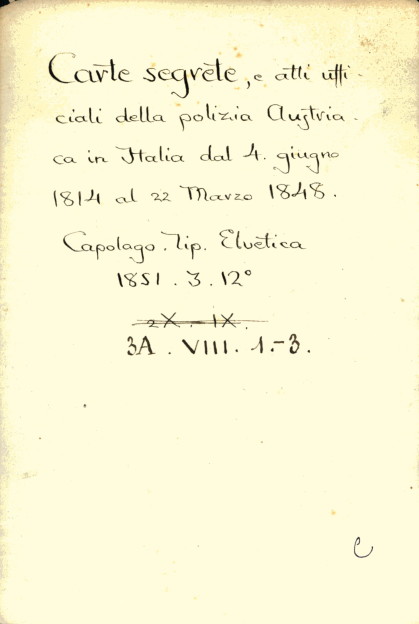 Carte segrete, e atti uffi-
ciali della polizia Austria-
ca in Italia dal 4. giugno
1814 al 22 Marzo 1848.
Capolago. Tip. Elvetica
1851. 3. 12°
2X. - IX.
3A. VIII. 1.-3.
C